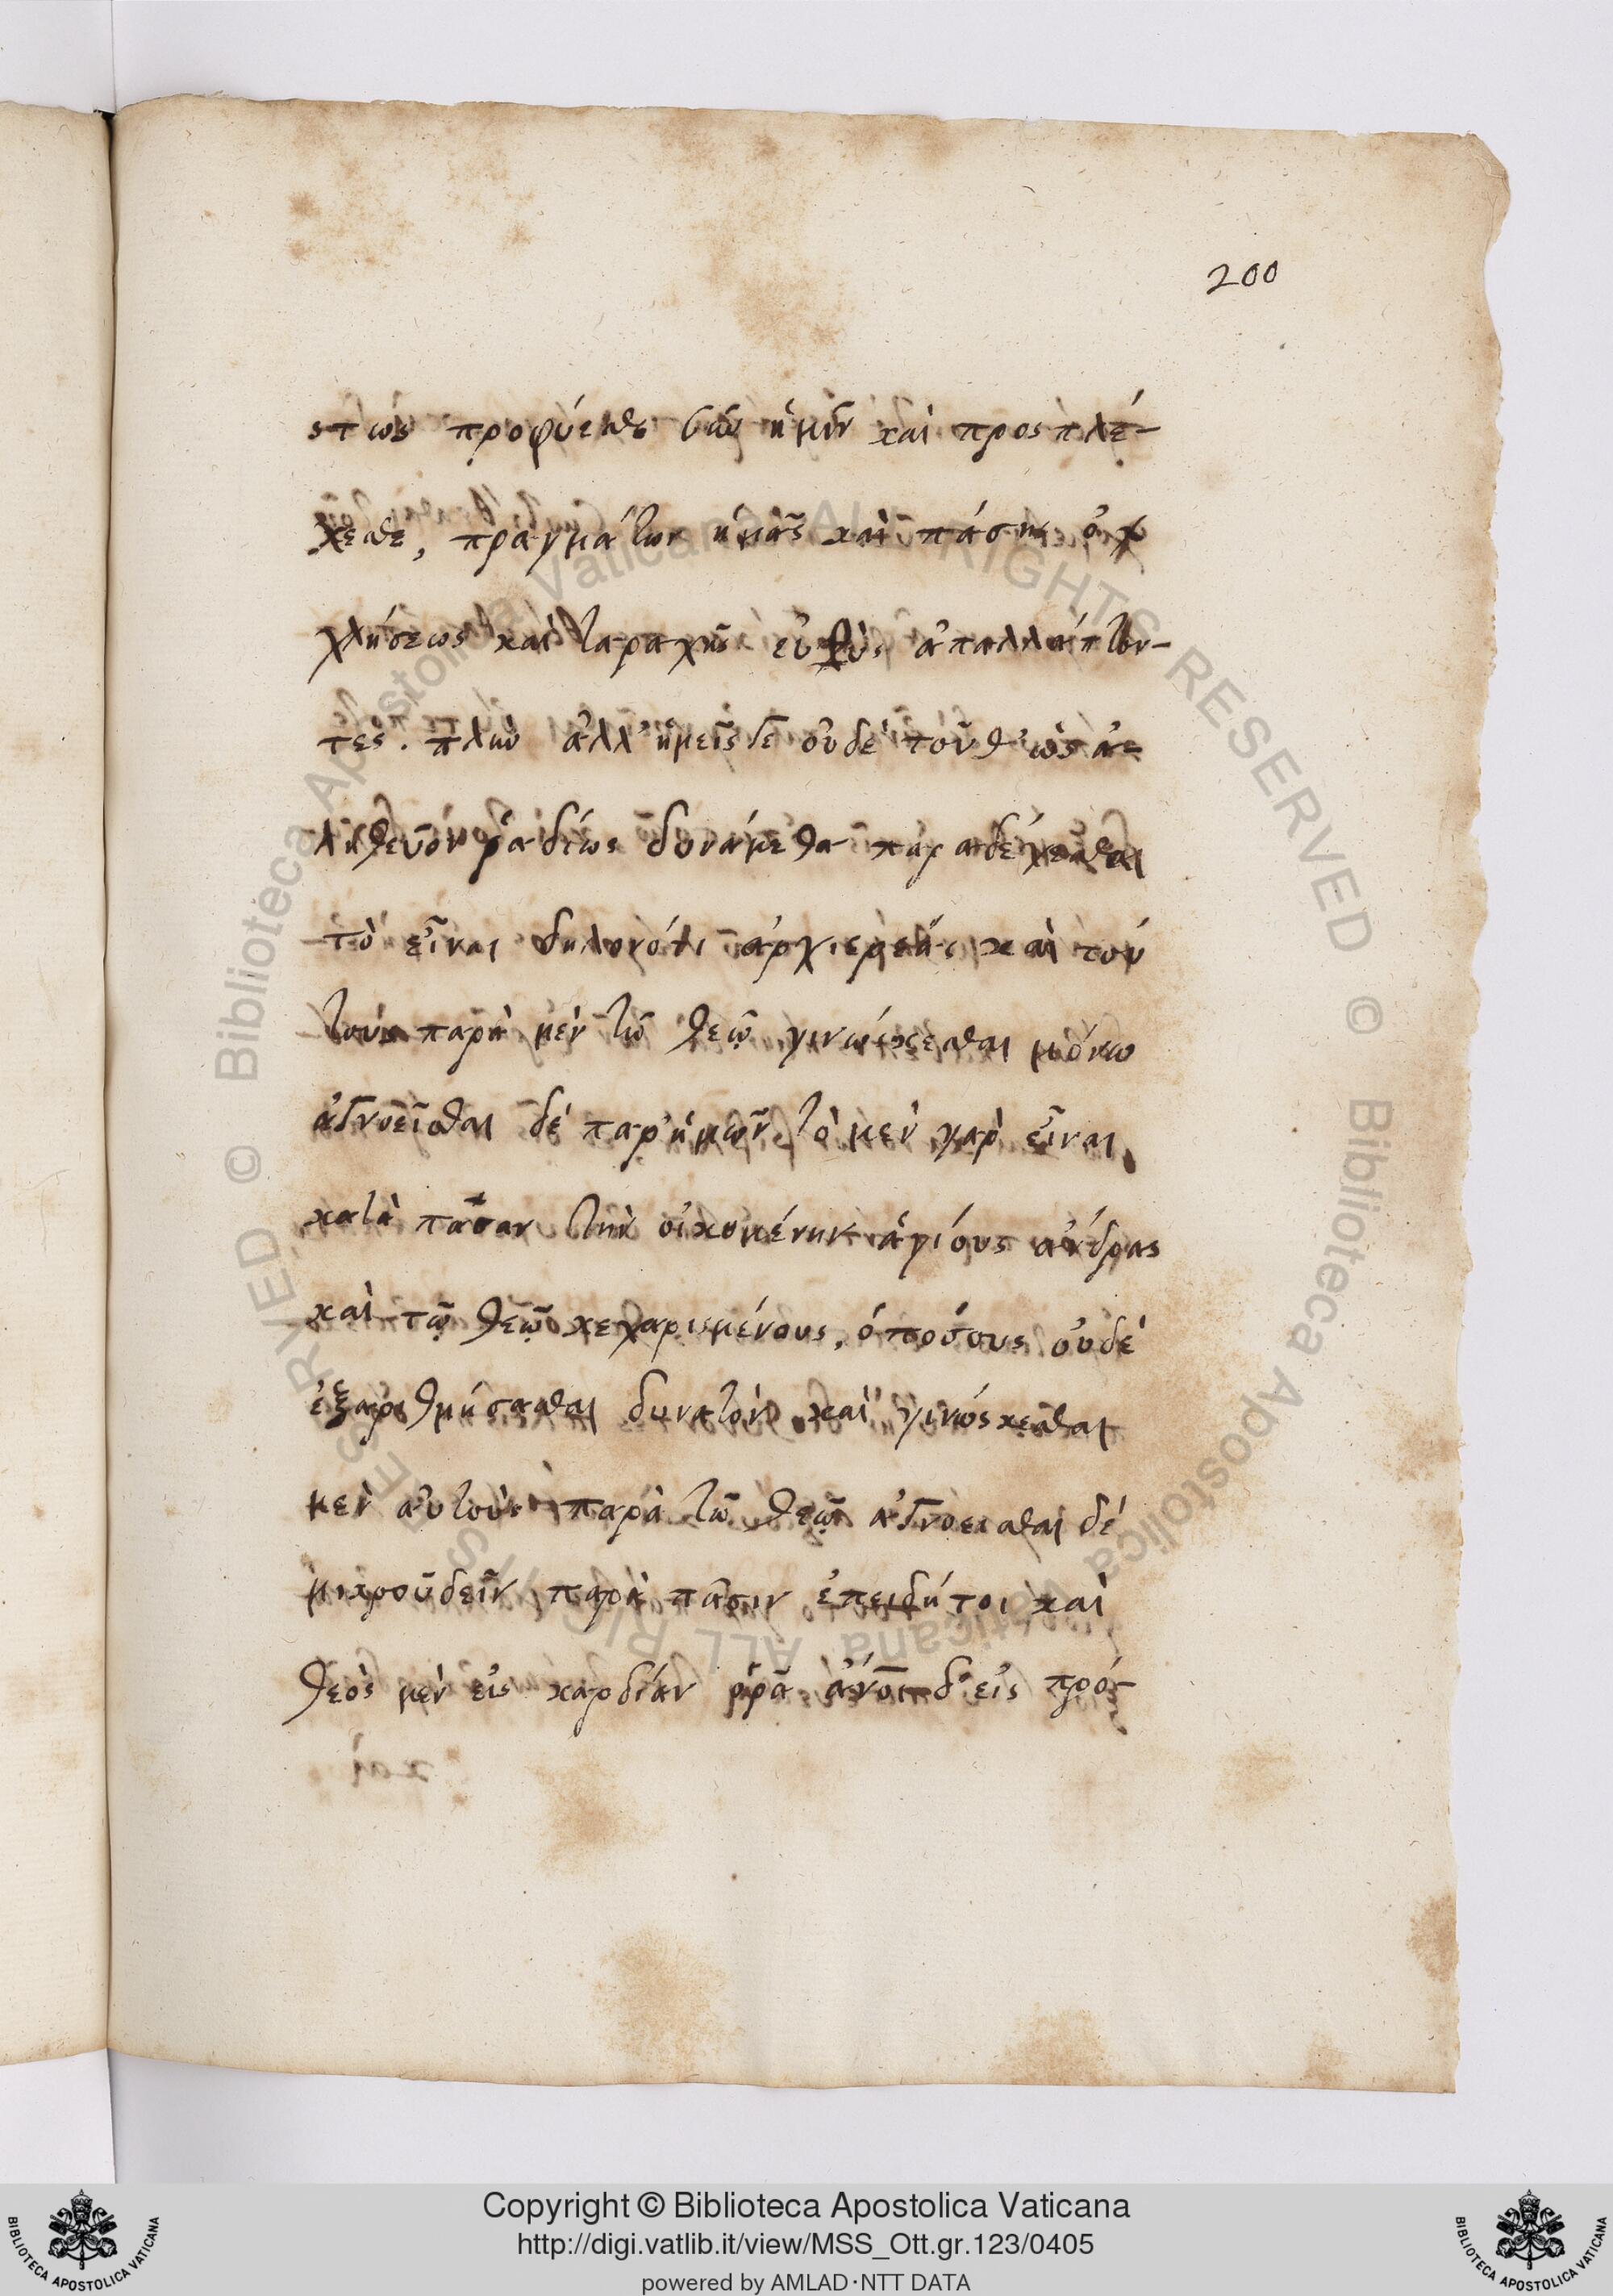 200
στως προφύεσθε σὺν ἡμῖν καὶ προσπλέ-
κεσθε, πραγμάτων ἡμᾶς καὶ πάσης ὀχ
χλήσεως καὶ ταραχῆς εὐθὺς ἀπαλλάττον-
τες. πλὴν ἀλλ' ἡμεῖς γε οὐδὲ τοῦθ' ὡς ἀ-
ληθεῦον ῥαδίως δυνάμεθα παραδέχεσθαι
τὸ εἶναι δηλονότι ἀρχιερεῖς καὶ τού
τους παρὰ μὲν τῶ θεῶ γινώσκεσθαι μόνω
ἀγνοεῖσθαι δὲ παρ' ἡμῶν τὸ μὲν γὰρ εἶναι
κατὰ πᾶσαν τὴν οἰκουμένην ἁγίους ἄνδρας
καὶ τῷ θεῷ κεχαρισμένους, ὁπόσους οὐδὲ
ἐξαριθμήσασθαι δυνατὸν καὶ γινώσκεσθαι
μὲν αὐτοὺς παρὰ τῶ θεῷ ἀγνοεισθαι δέ
μικροῦ δεῖν παρὰ πᾶσιν ἐπειδήτοι καὶ
θεὸς μὲν εἰς καρδίαν ὁρᾶ ἄνοι δ' εἰς πρό-
Copyright © Biblioteca Apostolica Vaticana
http://digi.vatlib.it/view/MSS_Ott.gr.123/0405
powered by AMLAD·NTT DATA
BIBLIOTECA APOSTOLICA VATICANA
BIBLIOTECA APOSTOLICA VATICANA
© Biblioteca Apostolica Vaticana ALL RIGHTS RESERVED © Biblioteca Apostolica Vaticana ALL RIGHTS RESERVED